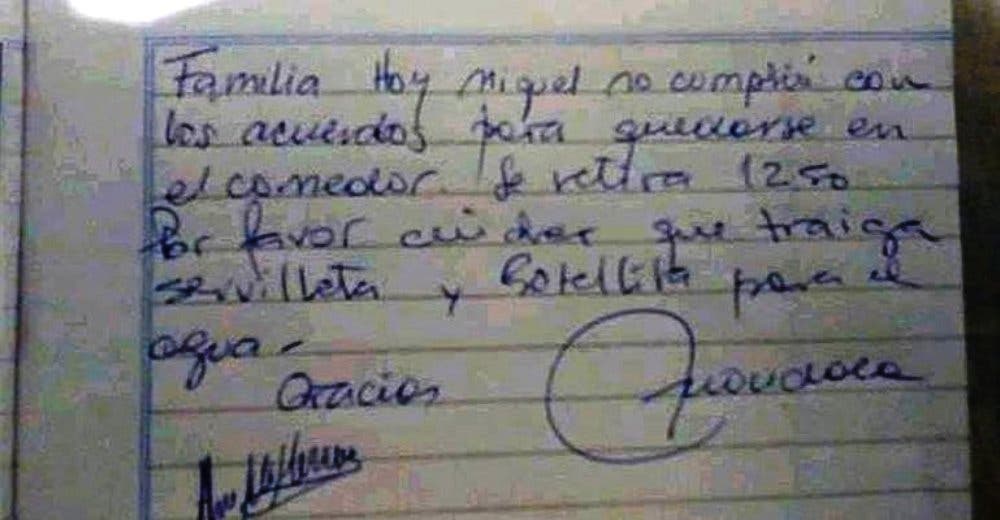 Familia Hoy Miguel no cumplió con
los acuerdos para quedarse en
el comedor. Se retira 12 50
Por favor cuidar que traiga
servilleta y botellita para el
agua.-
Gracias